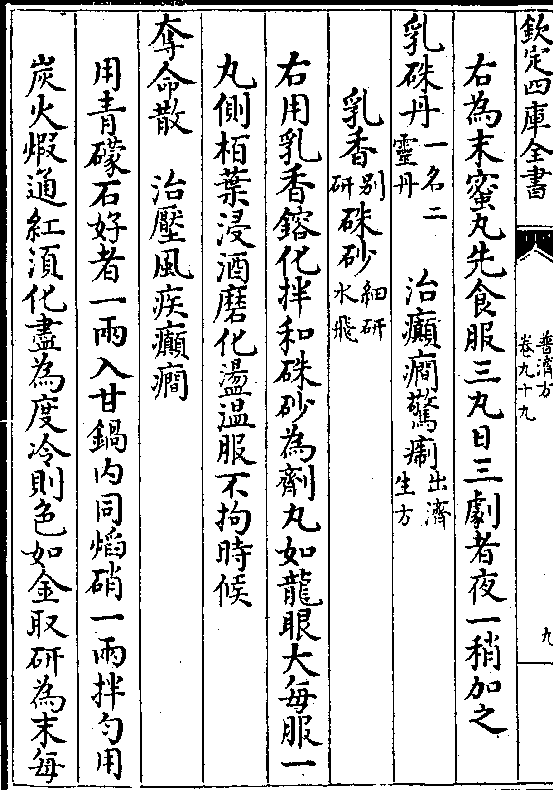 欽定四庫全書
普濟方
卷九十九
九
右為末蜜丸先食服三丸日三劇者夜一稍加之
乳硃丹一名二靈丹 治癲癇驚痫出濟生方
乳香别研硃砂細研水飛
右用乳香鎔化拌和硃砂為劑丸如龍眼大每服一
丸側栢葉浸酒磨化盪温服不拘時候
奪命散 治壓風疾癲癇
用青礞石好者一兩入甘鍋内同焰硝一兩拌勻用
炭火煅通紅湏化盡為度冷則色如金取研為末每